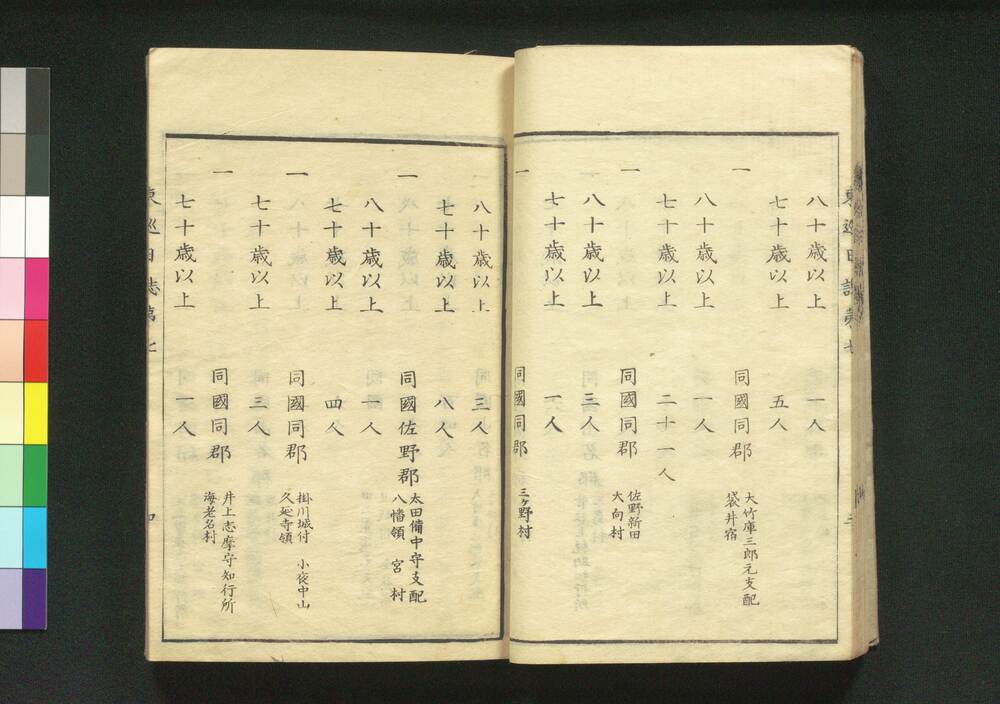 八十歳以上 一人
七十歳以上 五人
一 同國同郡 大竹庫三郎元支配
袋井宿
八十歳以上 一人
七十歳以上 二十一人
一 同國同郡 佐野新田
大向村
八十歳以上 三人
七十歳以上 一人
一 同國同郡 三ヶ野村
八十歳以上 三人
七十歳以上 八人
一 同國佐野郡 太田備中守支配
八幡領 宮村
八十歳以上 一人
七十歳以上 四人
一 同國同郡 掛川城付 小夜中山
久延寺領
七十歳以上 三人
一 同國同郡 井上志摩守知行所
海老名村
七十歳以上 一人
東巡日誌第七